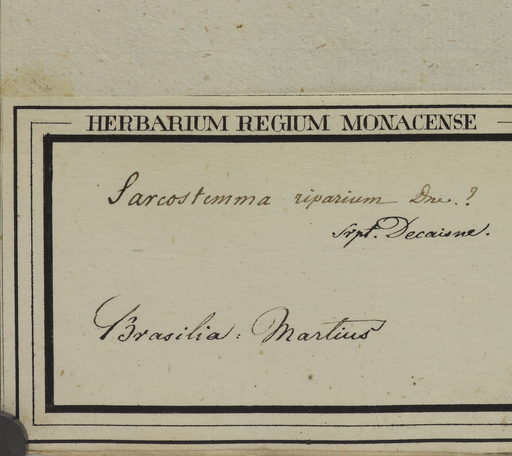 HERBARIUM REGIUM MONACENSE
Sarcostemma riparium Dne.?
Srpt. Decaisne.
Brasilia: Martius